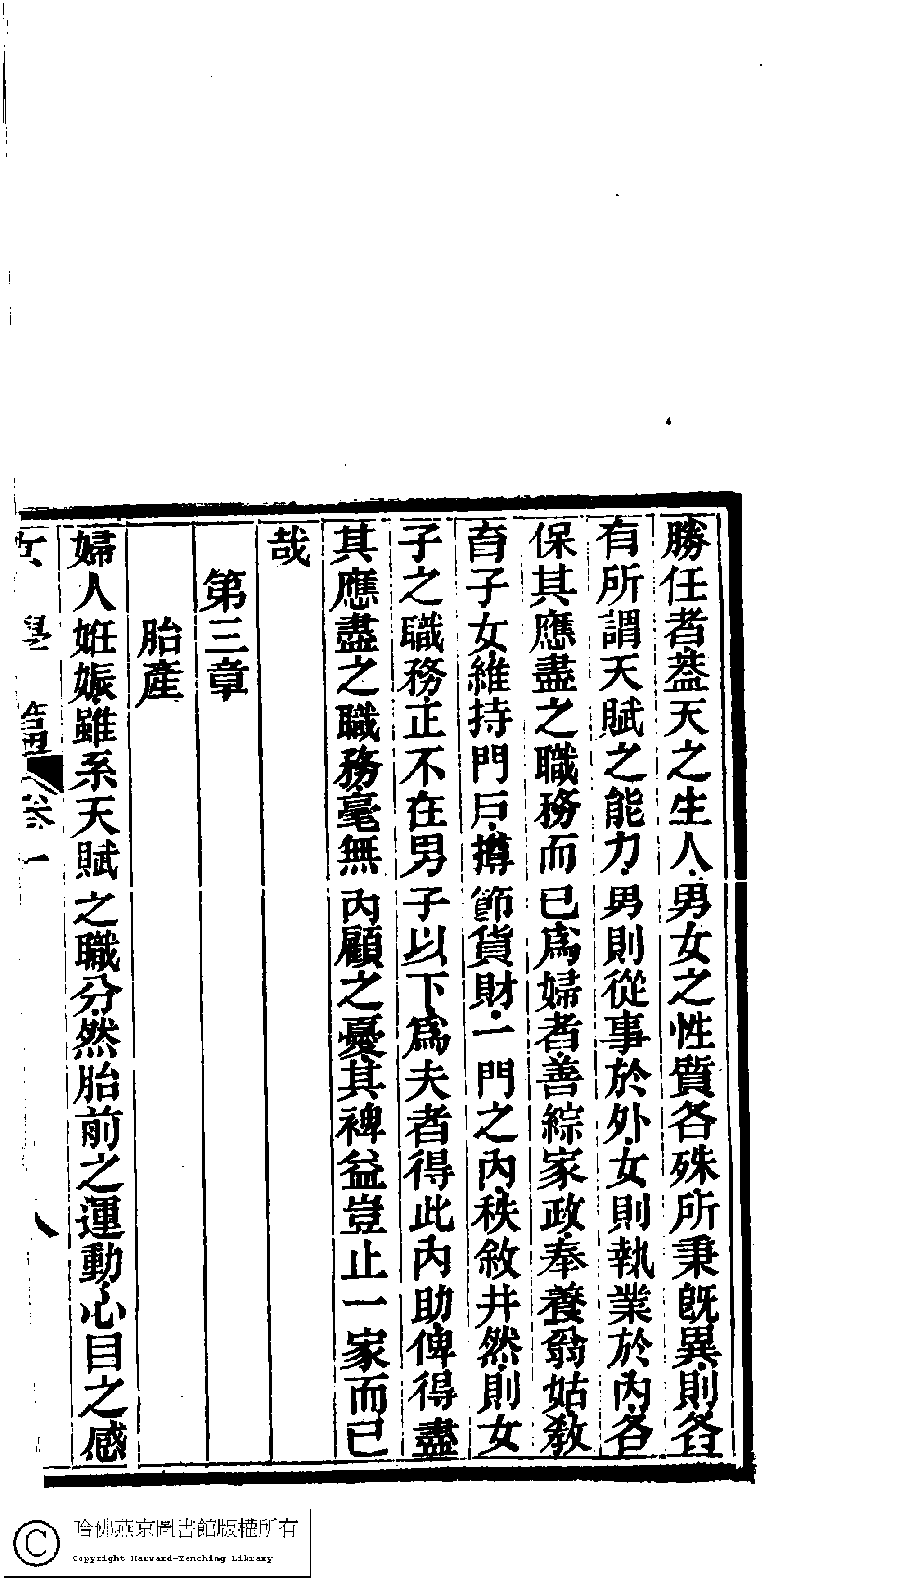 勝任者蓋天之生人男女之性質各殊所秉旣異則各
有所謂天賦之能力男則從事於外女則執業於內各
保其應盡之職務而已爲婦者善綜家政奉養翁姑敎
育子女維持門戶撙節貨財一門之內秩敘井然則女
子之職務正不在男子以下爲夫者得此內助俾得盡
其應盡之職務毫無內顧之憂其裨益豈止一家而已
哉
第三章
胎產
婦人姙娠雖系天賦之職分然胎前之運動心目之感
女學 卷一
哈佛燕京圖書館版權所有
Copyright Harvard-Yenching Library